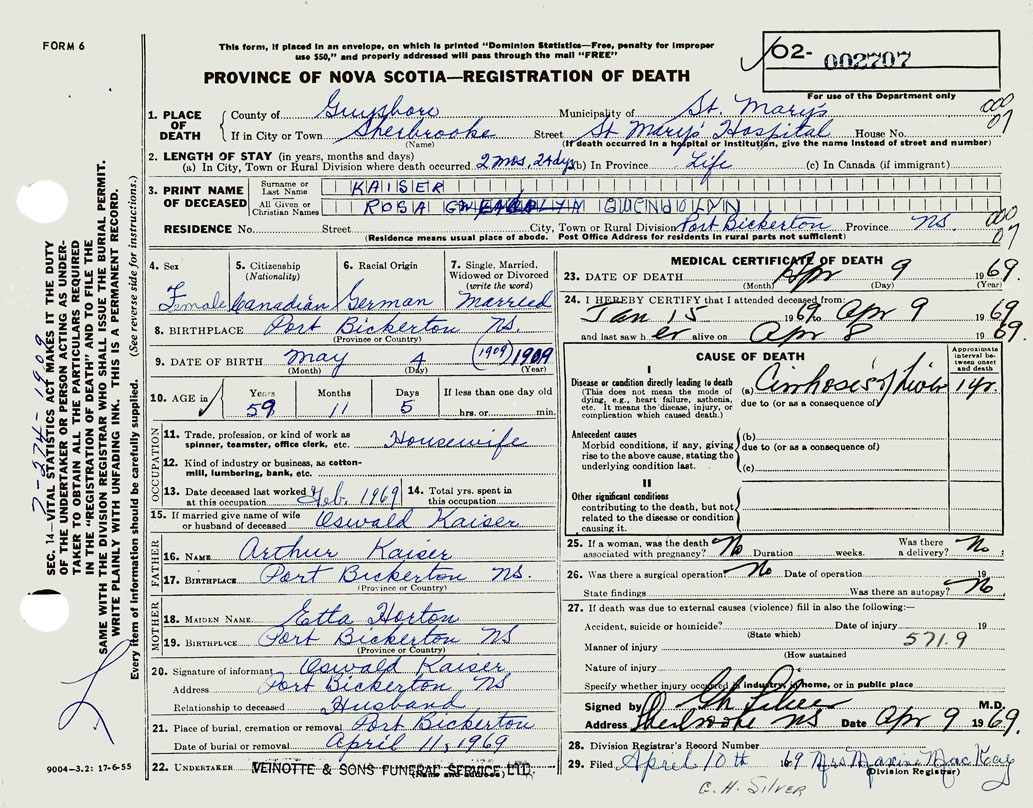 FORM 6
This form, if placed in an envelope, on which is printed "Dominion Statistics—Free, penalty for improper
use $50," and properly addressed will pass through the mail "FREE"
PROVINCE OF NOVA SCOTIA—REGISTRATION OF DEATH
02- 002707
For use of the Department only
1. PLACE OF DEATH
County of Guysboro Municipality of St. Mary's
000
07
If in City or Town Sherbrooke Street St Mary's Hospital House No.
(Name) (If death occurred in a hospital or institution, give the name instead of street and number)
2. LENGTH OF STAY (in years, months and days)
(a) In City, Town or Rural Division where death occurred 2 mos. 24 dys (b) In Province Life (c) In Canada (if immigrant)
3. PRINT NAME OF DECEASED
Surname or Last Name KAISER
All Given or Christian Names ROSA GWENDOLYN
RESIDENCE No. Street City, Town or Rural Division Port Bickerton Province NS.
000
07
(Residence means usual place of abode. Post Office Address for residents in rural parts not sufficient)
4. Sex Female
5. Citizenship (Nationality) Canadian
6. Racial Origin German
7. Single, Married, Widowed or Divorced (write the word) Married
8. BIRTHPLACE Port Bickerton NS.
(Province or Country)
9. DATE OF BIRTH May 4 (1909) 1909
(Month) (Day) (Year)
10. AGE in Years 59 Months 11 Days 5 If less than one day old hrs. or min.
OCCUPATION
11. Trade, profession, or kind of work as spinner, teamster, office clerk, etc. Housewife
12. Kind of industry or business, as cotton-mill, lumbering, bank, etc.
13. Date deceased last worked at this occupation Feb. 1969
14. Total yrs. spent in this occupation
15. If married give name of wife or husband of deceased Oswald Kaiser
FATHER
16. NAME Arthur Kaiser
17. BIRTHPLACE Port Bickerton NS.
(Province or Country)
MOTHER
18. MAIDEN NAME Etta Horton
19. BIRTHPLACE Port Bickerton NS
(Province or Country)
20. Signature of informant Oswald Kaiser
Address Port Bickerton NS
Relationship to deceased Husband
21. Place of burial, cremation or removal Port Bickerton
Date of burial or removal April 11, 1969
22. UNDERTAKER VEINOTTE & SONS FUNERAL SERVICE LTD.
(Name and address)
MEDICAL CERTIFICATE OF DEATH
23. DATE OF DEATH Apr 9 1969
(Month) (Day) (Year)
24. I HEREBY CERTIFY that I attended deceased from:
Jan 15 1969 to Apr 9 1969
and last saw her alive on Apr 8 1969.
CAUSE OF DEATH
Approximate interval between onset and death
I
Disease or condition directly leading to death
(This does not mean the mode of dying, e.g., heart failure, asthenia, etc. It means the disease, injury, or complication which caused death.)
(a) Cirrhosis of Liver 1 yr.
due to (or as a consequence of)
Antecedent causes
Morbid conditions, if any, giving rise to the above cause, stating the underlying condition last.
(b)
due to (or as a consequence of)
(c)
II
Other significant conditions
contributing to the death, but not related to the disease or condition causing it.
25. If a woman, was the death associated with pregnancy? No Duration weeks. Was there a delivery? No
26. Was there a surgical operation? No Date of operation 19
State findings Was there an autopsy? No
27. If death was due to external causes (violence) fill in also the following:—
Accident, suicide or homicide? Date of injury 19
(State which)
571.9
Manner of injury
(How sustained
Nature of injury
Specify whether injury occurred in industry, in home, or in public place
Signed by M.D.
Address Sherbrooke NS Date Apr 9 1969.
28. Division Registrar's Record Number
29. Filed April 10th 1969 Mrs Maxine MacKay
(Division Registrar)
G. H. SILVER
2-274-1909
SEC. 14—VITAL STATISTICS ACT MAKES IT THE DUTY
OF THE UNDERTAKER OR PERSON ACTING AS UNDER-
TAKER TO OBTAIN ALL THE PARTICULARS REQUIRED
IN THE "REGISTRATION OF DEATH" AND TO FILE THE
SAME WITH THE DIVISION REGISTRAR WHO SHALL ISSUE THE BURIAL PERMIT.
WRITE PLAINLY WITH UNFADING INK. THIS IS A PERMANENT RECORD.
Every item of information should be carefully supplied. (See reverse side for instructions.)
9004-3.2: 17-6-55